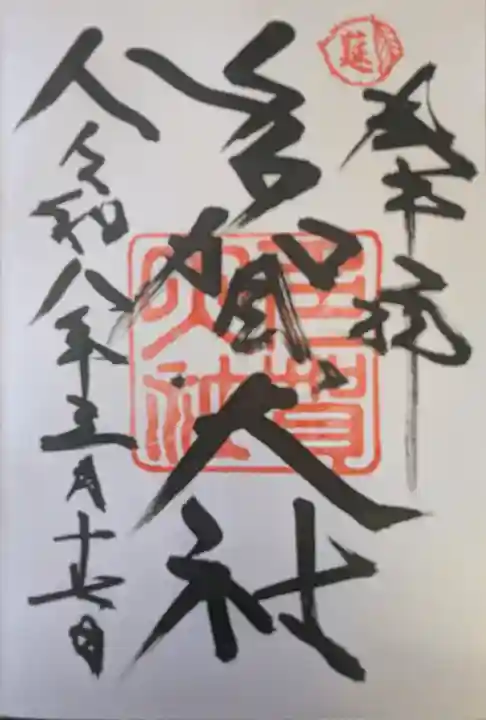 莚
奉拝
多賀大社
多賀大社
人令和八年三月十七日